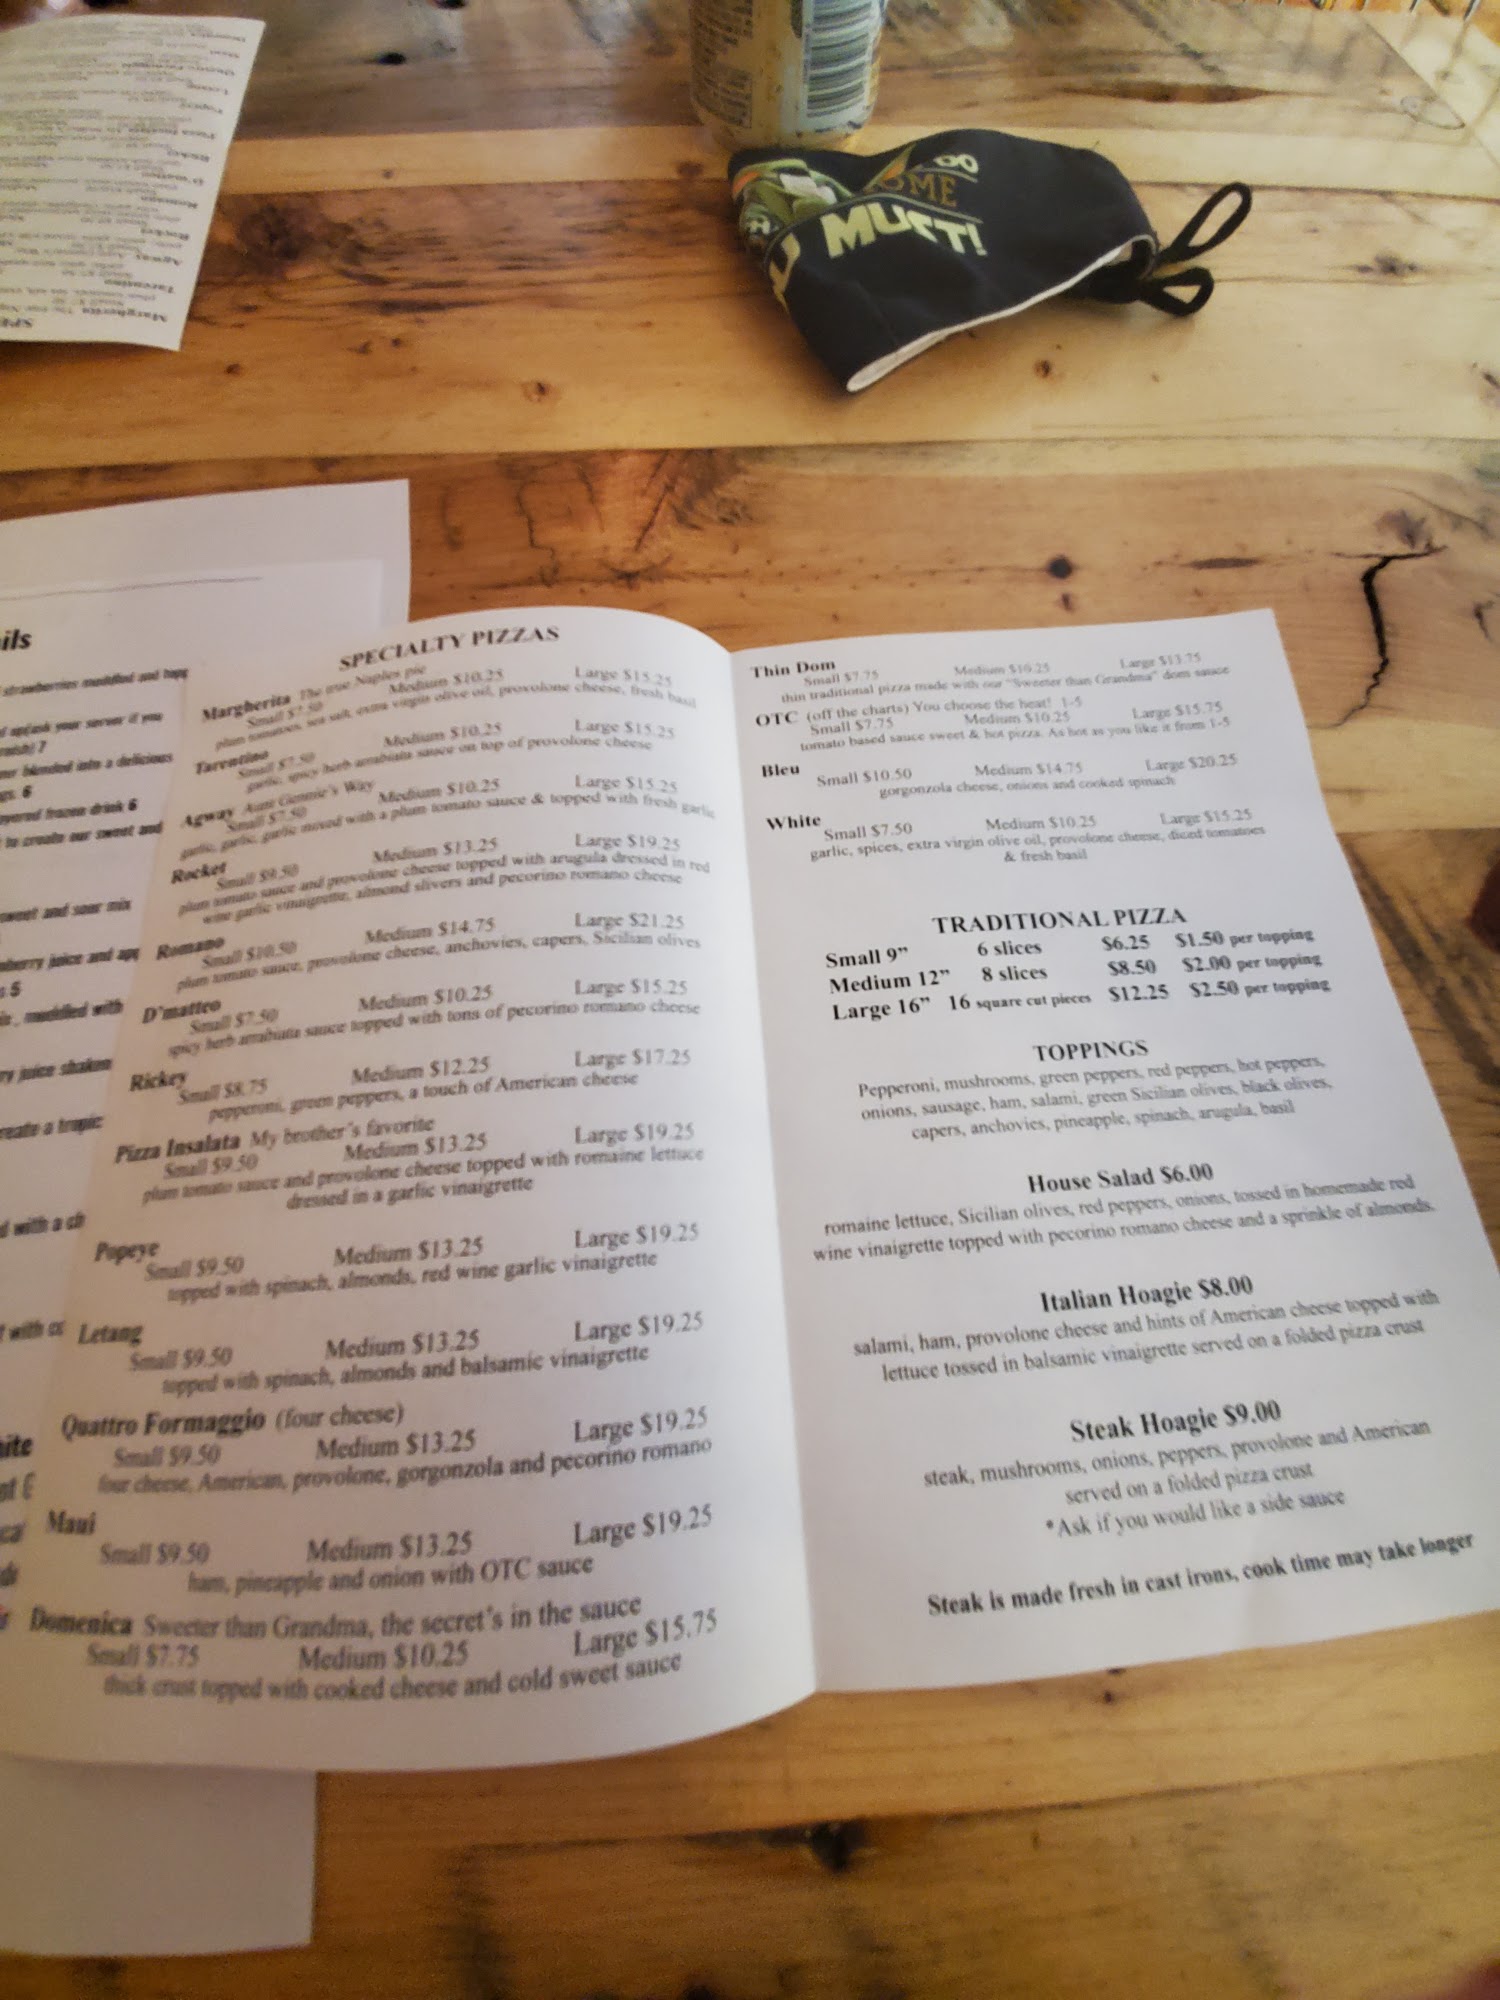 OME
MUST!
ils
strawberries muddled and topp
6
5
SPECIALTY PIZZAS
Margherita The true Naples pie
Small $7.50 Medium $10.25 Large $15.25
plum tomatoes, sea salt, extra virgin olive oil, provolone cheese, fresh basil
Tarentino
Small $7.50 Medium $10.25 Large $15.25
garlic, spicy herb arrabiata sauce on top of provolone cheese
Agway Aunt Gennie's Way
Small $7.50 Medium $10.25 Large $15.25
garlic, garlic, garlic mixed with a plum tomato sauce & topped with fresh garlic
Rocket
Small $9.50 Medium $13.25 Large $19.25
plum tomato sauce and provolone cheese topped with arugula dressed in red
wine garlic vinaigrette, almond slivers and pecorino romano cheese
Romano
Small $10.50 Medium $14.75 Large $21.25
plum tomato sauce, provolone cheese, anchovies, capers, Sicilian olives
D'matteo
Small $7.50 Medium $10.25 Large $15.25
spicy herb arrabiata sauce topped with tons of pecorino romano cheese
Rickey
Small $8.75 Medium $12.25 Large $17.25
pepperoni, green peppers, a touch of American cheese
Pizza Insalata My brother's favorite
Small $9.50 Medium $13.25 Large $19.25
plum tomato sauce and provolone cheese topped with romaine lettuce
dressed in a garlic vinaigrette
Popeye
Small $9.50 Medium $13.25 Large $19.25
topped with spinach, almonds, red wine garlic vinaigrette
Letang
Small $9.50 Medium $13.25 Large $19.25
topped with spinach, almonds and balsamic vinaigrette
Quattro Formaggio (four cheese)
Small $9.50 Medium $13.25 Large $19.25
four cheese, American, provolone, gorgonzola and pecorino romano
Maui
Small $9.50 Medium $13.25 Large $19.25
ham, pineapple and onion with OTC sauce
Domenica Sweeter than Grandma, the secret's in the sauce
Small $7.75 Medium $10.25 Large $15.75
thick crust topped with cooked cheese and cold sweet sauce
Thin Dom
Small $7.75 Medium $10.25 Large $13.75
thin traditional pizza made with our "Sweeter than Grandma" dom sauce
OTC (off the charts) You choose the heat! 1-5
Small $7.75 Medium $10.25 Large $15.75
tomato based sauce sweet & hot pizza. As hot as you like it from 1-5
Bleu
Small $10.50 Medium $14.75 Large $20.25
gorgonzola cheese, onions and cooked spinach
White
Small $7.50 Medium $10.25 Large $15.25
garlic, spices, extra virgin olive oil, provolone cheese, diced tomatoes
& fresh basil
TRADITIONAL PIZZA
Small 9” 6 slices $6.25 $1.50 per topping
Medium 12” 8 slices $8.50 $2.00 per topping
Large 16” 16 square cut pieces $12.25 $2.50 per topping
TOPPINGS
Pepperoni, mushrooms, green peppers, red peppers, hot peppers,
onions, sausage, ham, salami, green Sicilian olives, black olives,
capers, anchovies, pineapple, spinach, arugula, basil
House Salad $6.00
romaine lettuce, Sicilian olives, red peppers, onions, tossed in homemade red
wine vinaigrette topped with pecorino romano cheese and a sprinkle of almonds.
Italian Hoagie $8.00
salami, ham, provolone cheese and hints of American cheese topped with
lettuce tossed in balsamic vinaigrette served on a folded pizza crust
Steak Hoagie $9.00
steak, mushrooms, onions, peppers, provolone and American
served on a folded pizza crust
*Ask if you would like a side sauce
Steak is made fresh in cast irons, cook time may take longer